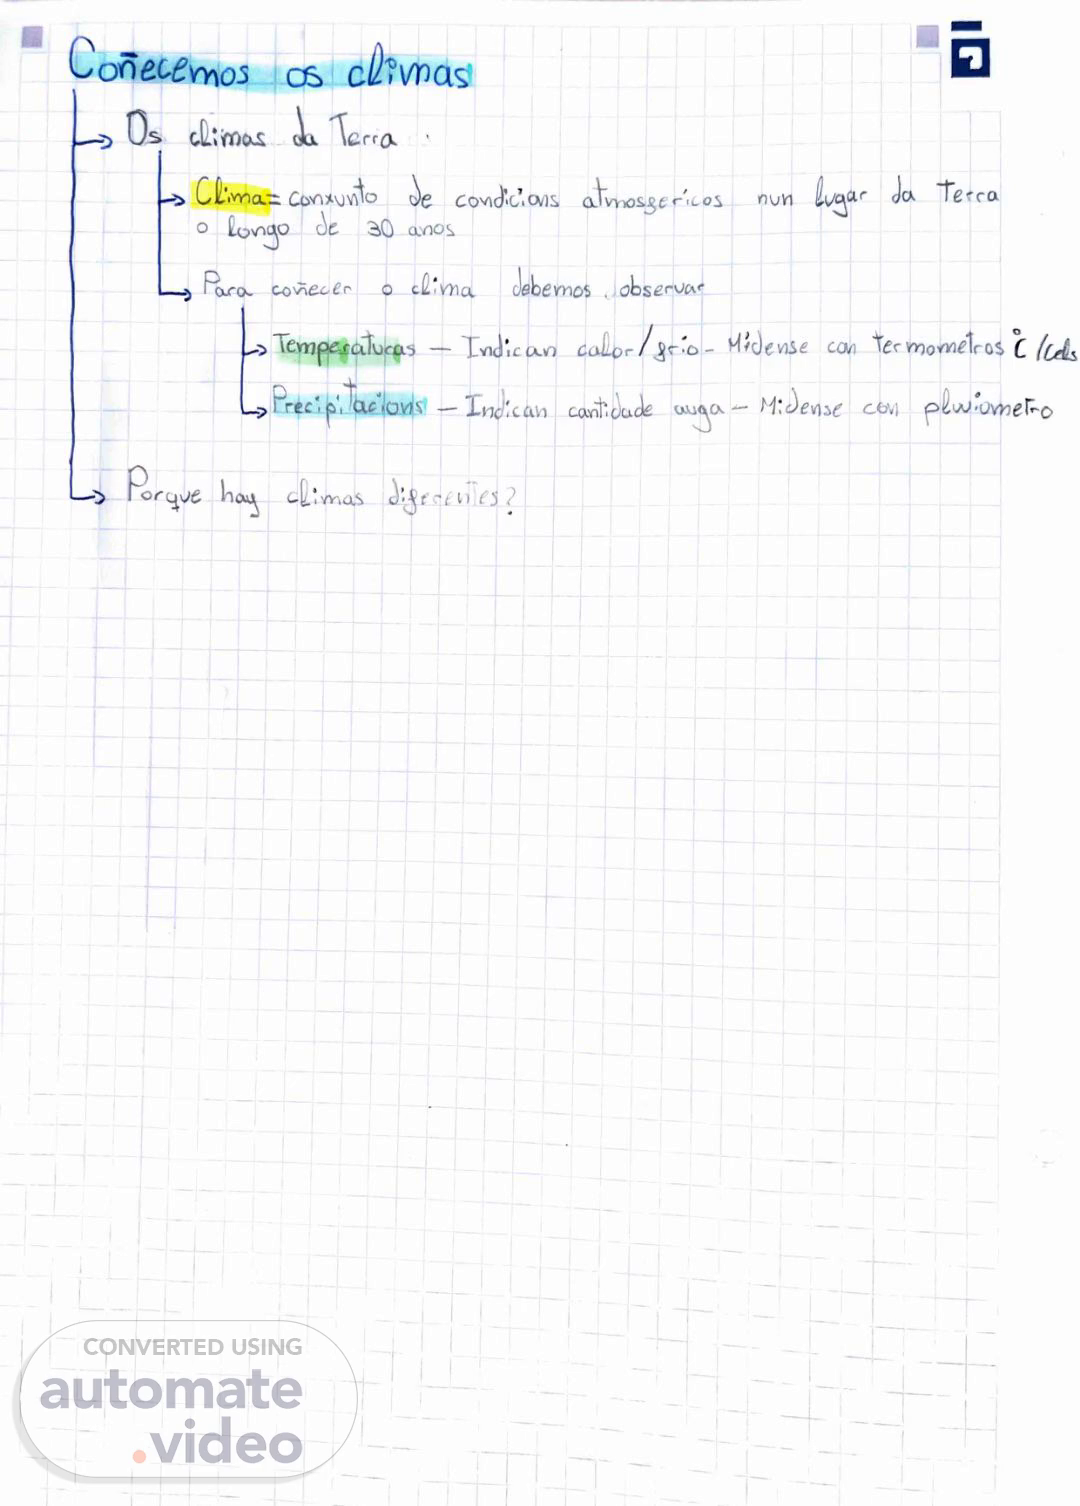 Coñecemos os climas
Os climas da Terra
Clima = conxunto de condicions atmosfericos nun lugar da terra
o longo de 30 anos
Para coñecer o clima debemos observar
Temperaturas — Indican calor/frio - Midense con termometros °C /Cels
Precipitacions — Indican cantidade auga — Midense con pluviometro
Porque hay climas diferentes?
CONVERTED USING
automate
.video